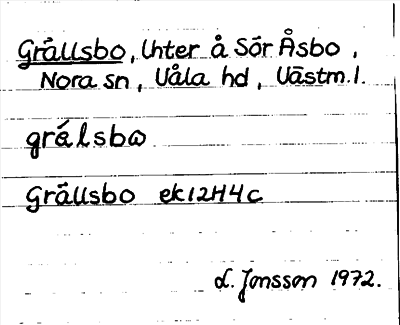 Grällsbo, Unter å Sör Åsbo,
Nora sn, Våla hd, Västm.l.
grälsbω
Grällsbo ek12H4c
L. Jonsson 1972.